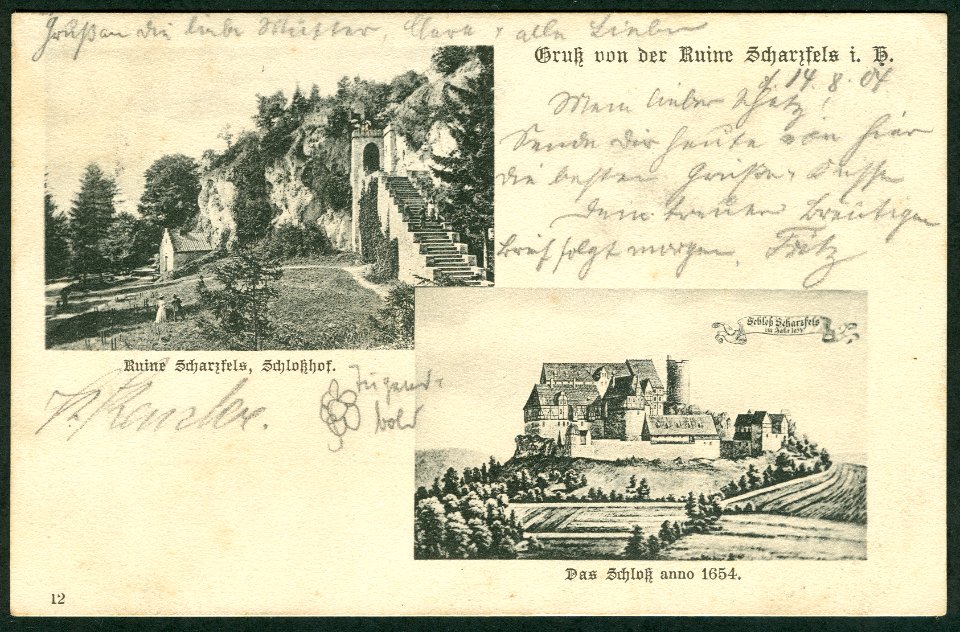 Gruß an die liebe Mutter, Clara & alle Lieben
Gruß von der Ruine Scharzfels i. H.
14. 8. 04
Mein lieber Schatz!
Sende dir heute von hier
die besten Grüße & Küsse
Dein treuer Bräutigam
Brief folgt morgen, Fritz
Schloß Scharzfels
im Jahr 1654
Ruine Scharzfels, Schloßhof.
Jugend-
bold
Das Schloß anno 1654.
12